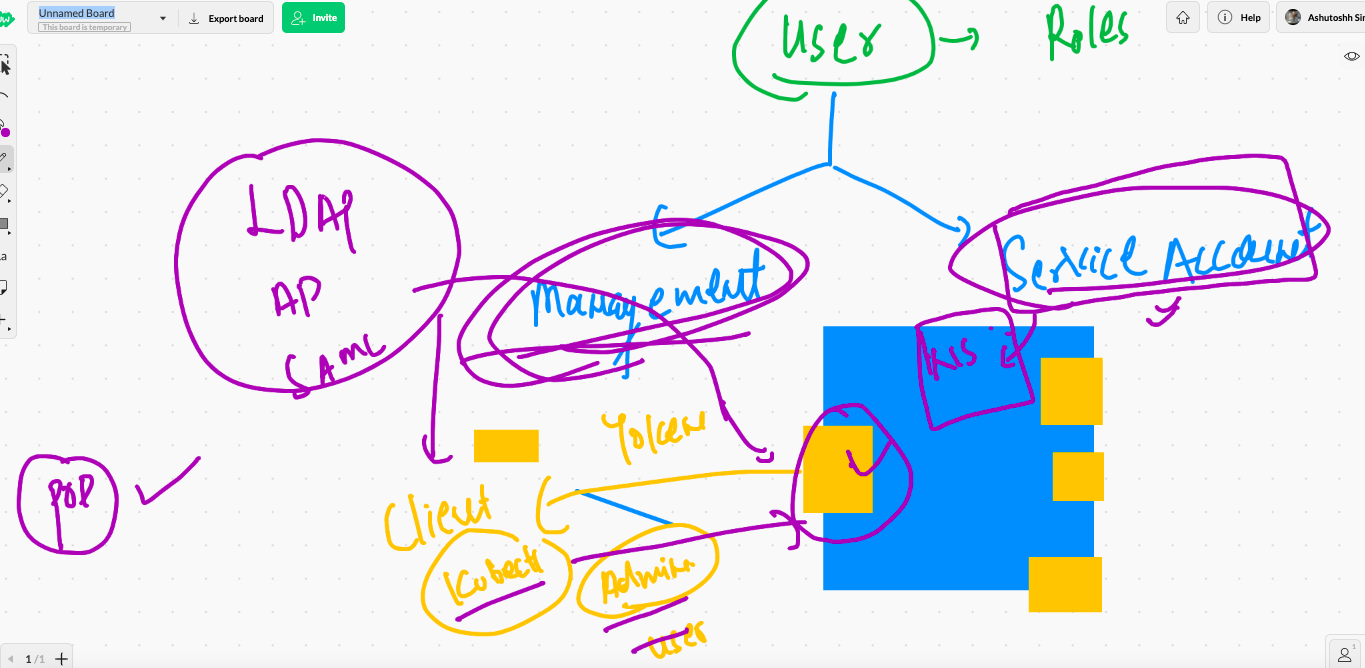 Unnamed Board
This board is temporary
Export board
Invite
Help
Ashutoshh Sin
User → Roles
LDAP
AP
SAML
Management
Service Account
Token
POD
Client
Kubectl
Admin
user
1 /1
1